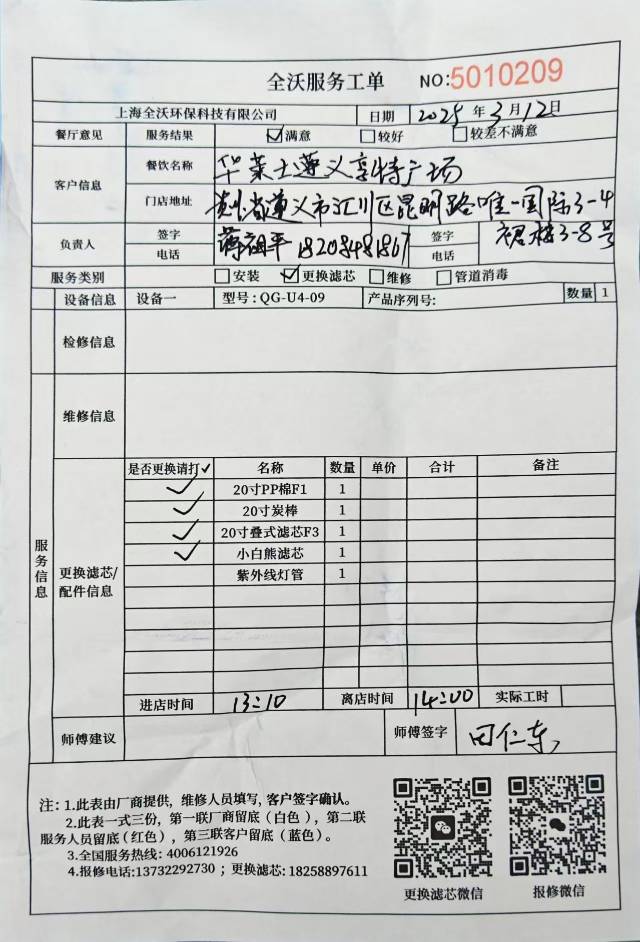 全沃服务工单 NO:5010209
上海全沃环保科技有限公司 日期 2025 年 3 月 12 日
餐厅意见 服务结果 ☑满意 □较好 □较差不满意
客户信息 餐饮名称 华莱士遵义亨特广场
门店地址 贵州省遵义市汇川区昆明路唯一国际3-4
裙楼3-8号
负责人 签字 蒋祖平 电话 18208481867 签字 电话
服务类别 □安装 ☑更换滤芯 □维修 □管道消毒
设备信息 设备一 型号: QG-U4-09 产品序列号: 数量 1
检修信息
维修信息
服务信息
更换滤芯/配件信息
是否更换请打✓ 名称 数量 单价 合计 备注
✓ 20寸PP棉F1 1
✓ 20寸炭棒 1
✓ 20寸叠式滤芯F3 1
✓ 小白熊滤芯 1
紫外线灯管 1
进店时间 13:10 离店时间 14:00 实际工时
师傅建议 师傅签字 田仁东
注: 1.此表由厂商提供, 维修人员填写, 客户签字确认。
2.此表一式三份, 第一联厂商留底(白色), 第二联
服务人员留底(红色), 第三联客户留底(蓝色)。
3.全国服务热线: 4006121926
4.报修电话:13732292730 ; 更换滤芯: 18258897611
更换滤芯微信 报修微信